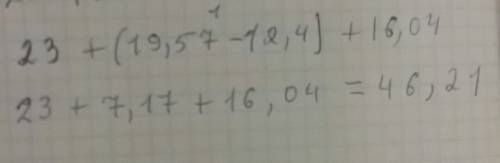 23 + (19,57 - 12,4) + 16,04
23 + 7,17 + 16,04 = 46,21